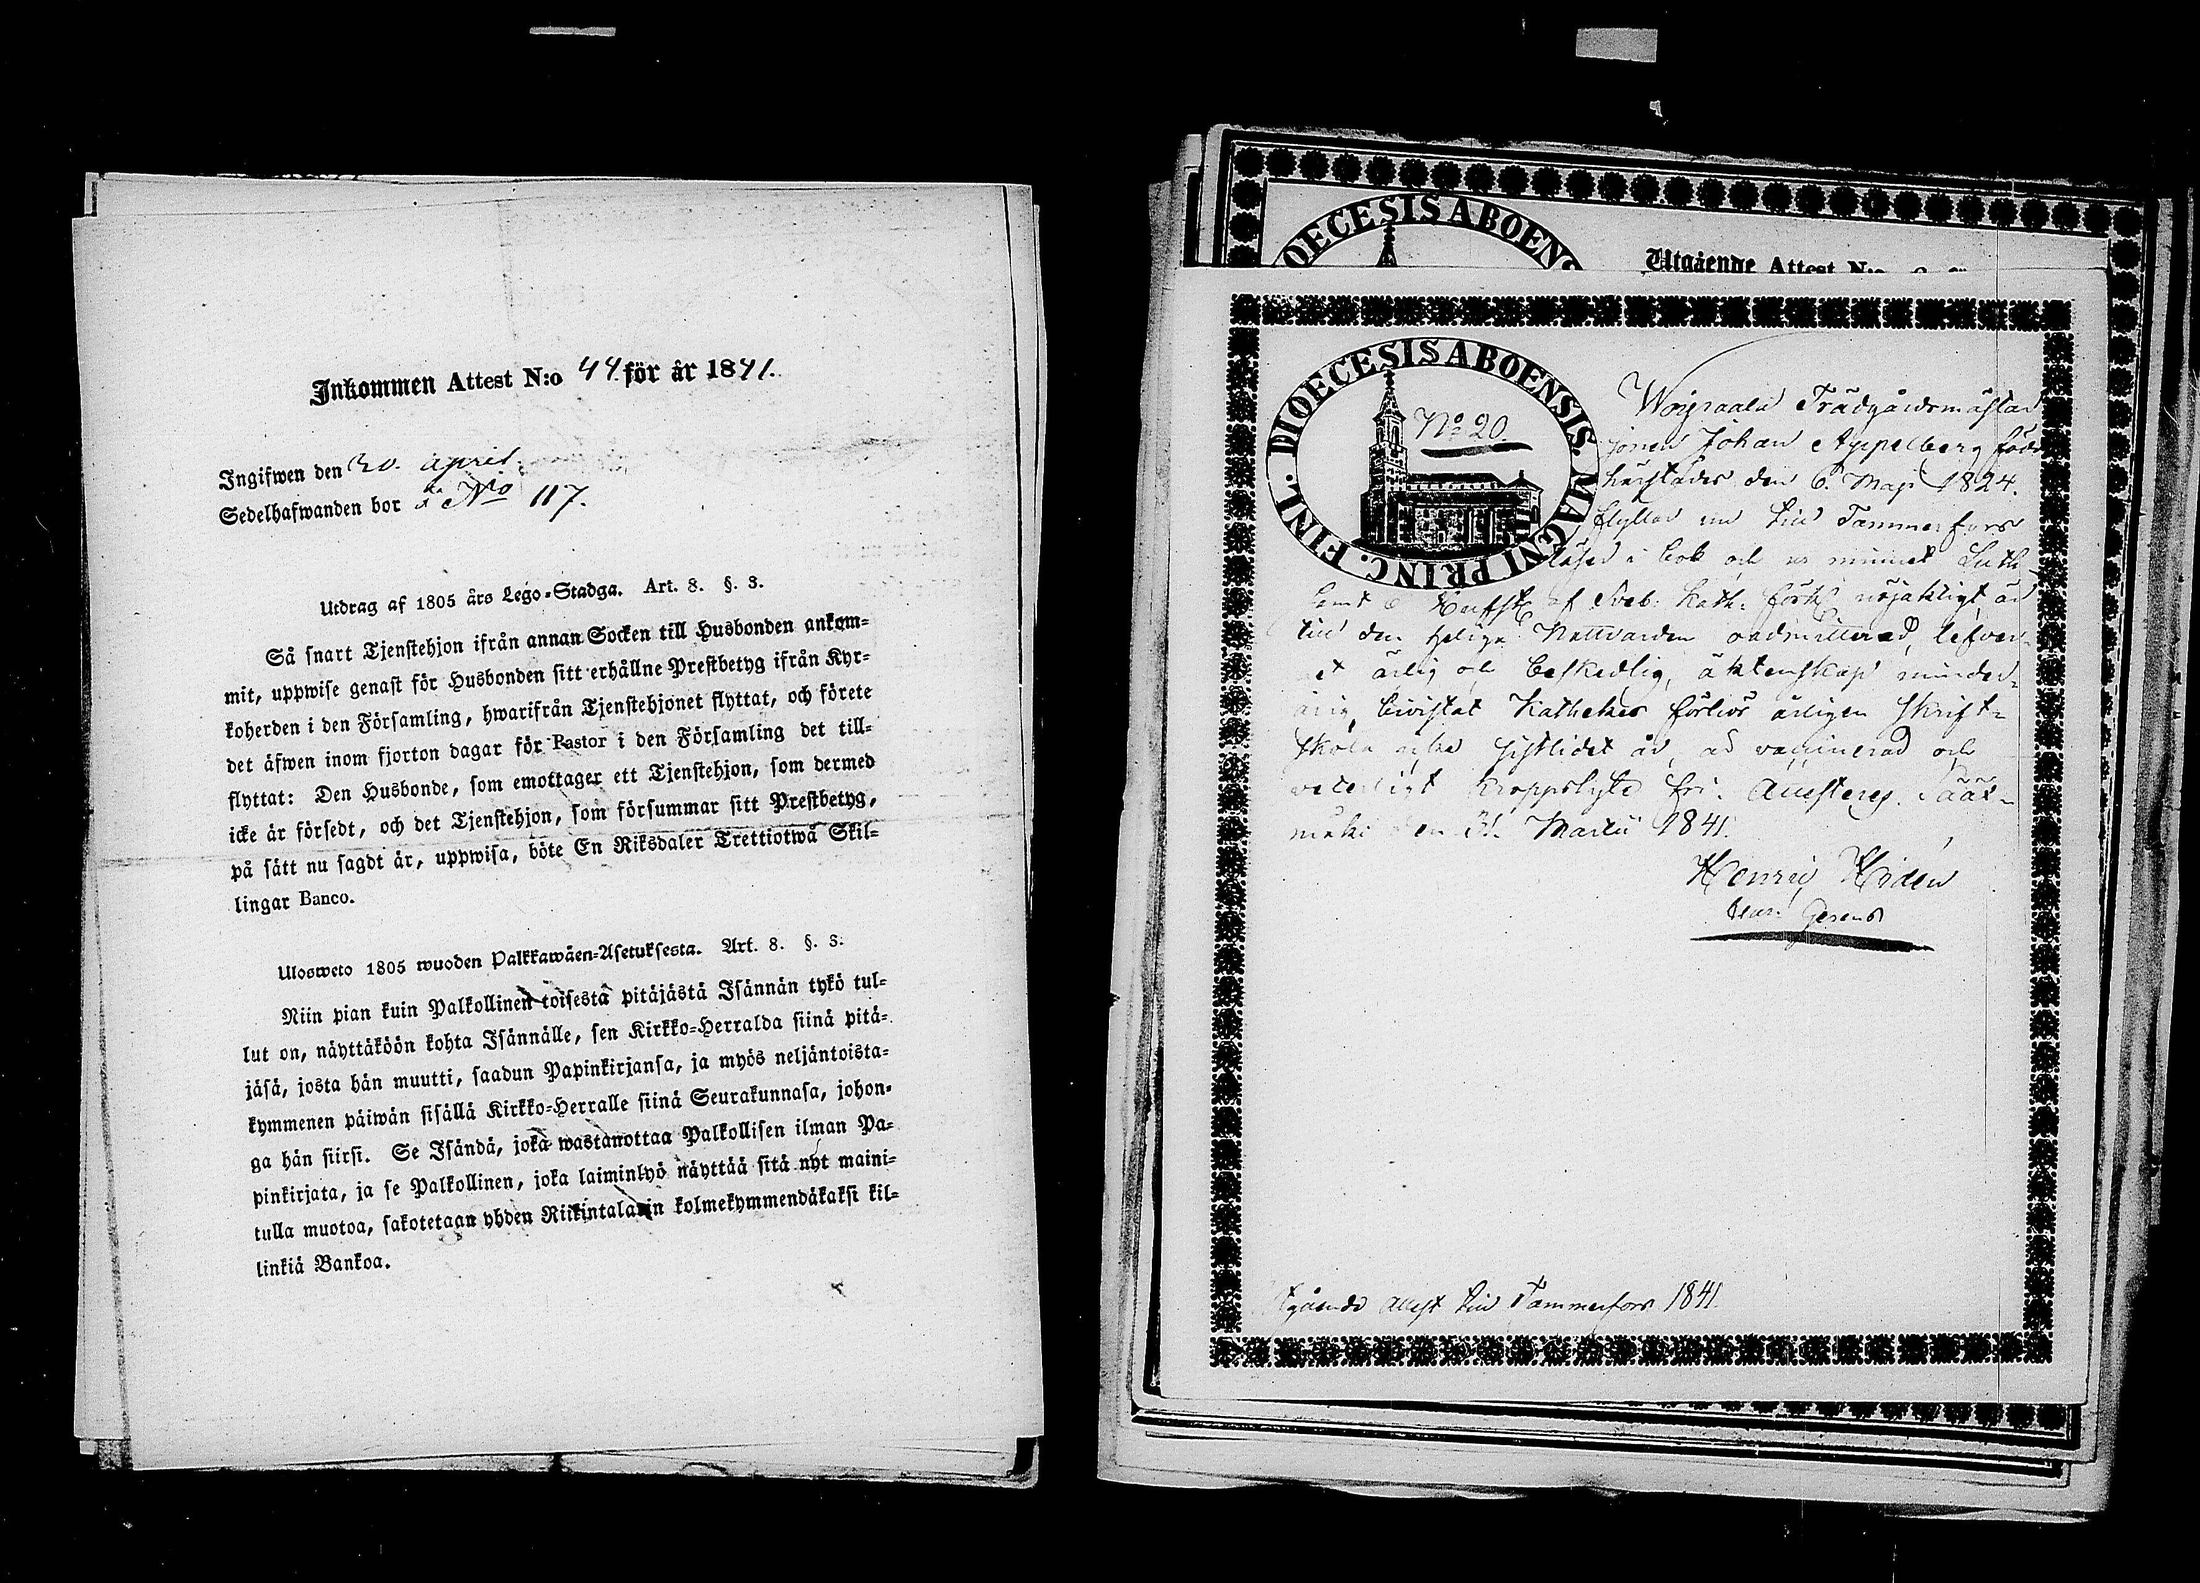 Inkommen Attest N:o 44. för år 1841.
Ingifwen den 30. april.
Sedelhafwanden bor i No 117.
Utdrag af 1805 års Lego-Stadga. Art. 8. §. 3.
Så snart Tjenstehjon ifrån annan Socken till Husbonden ankom-
mit, uppwise genast för Husbonden sitt erhållne Prestbetyg ifrån Kyr-
koherden i den Församling, hwarifrån Tjenstehjonet flyttat, och förete
det äfwen inom fjorton dagar för Pastor i den Församling det till-
flyttat: Den Husbonde, som emottager ett Tjenstehjon, som dermed
icke är försedt, och det Tjenstehjon, som försummar sitt Prestbetyg,
på sätt nu sagdt är, uppwisa, böte En Riksdaler Trettiotwå Skil-
lingar Banco.
Ulosweto 1805 wuoden Palkkawäen-Asetuksesta. Art. 8. §. 3.
Niin pian kuin Palkollinen toisesta pitäjästä Isännän tykö tul-
lut on, näyttäköön kohta Isännälle, sen Kirkko-Herralda siinä pitä-
jäsä, josta hän muutti, saadun Papinkirjansa, ja myös neljäntoista-
kymmenen päiwän sisällä Kirkko-Herralle siinä Seurakunnasa, johon-
ga hän siirsi. Se Isändä, joka wastanottaa Palkollisen ilman Pa-
pinkirjata, ja se Palkollinen, joka laiminlyö näyttää sitä nyt maini-
tulla muotoa, sakotetaan yhden Riikintalarin kolmekymmendäkaksi kil-
linkiä Bankoa.
DIOECESIS ABOENS
Utgående Attest N:o
DIOECESIS ABOENSIS. MAGNI PRINC. FINL.
No 20.
Trädgårdsmästar
Johan Appelberg född
härstädes den 6. Maji 1824.
flyttar nu till Tammerfors
läser i bok och ur minnet Luth:
samt af Sveb. Kath: förkl. nöjaktigt, är
till den heliga Nattvarden admitterad, lefver-
net ärlig och beskedlig, äktenskap minder-
årig, bivistat Kathekes förhör årligen skrift-
skola sistlidet år, är vaccinerad och
veterligt kroppslyte fri. Attesteras. Sääx-
mäki den 31. Martii 1841.
Henric Hidén
Gerens
tgående attest till Tammerfors 1841.